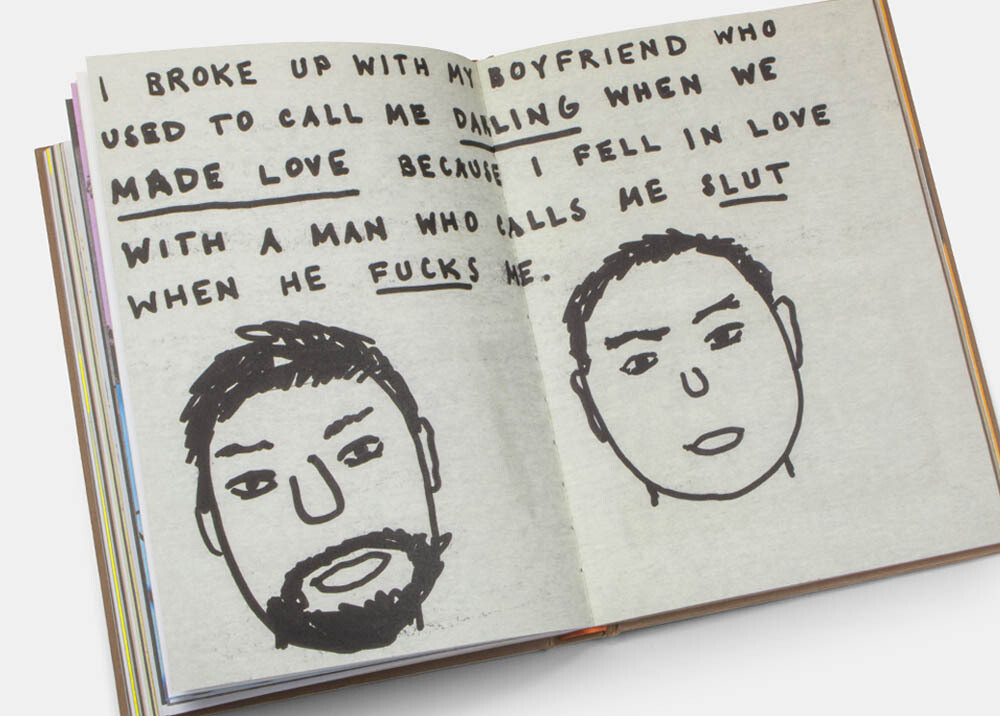 I BROKE UP WITH MY BOYFRIEND WHO
USED TO CALL ME DARLING WHEN WE
MADE LOVE BECAUSE I FELL IN LOVE
WITH A MAN WHO CALLS ME SLUT
WHEN HE FUCKS ME.